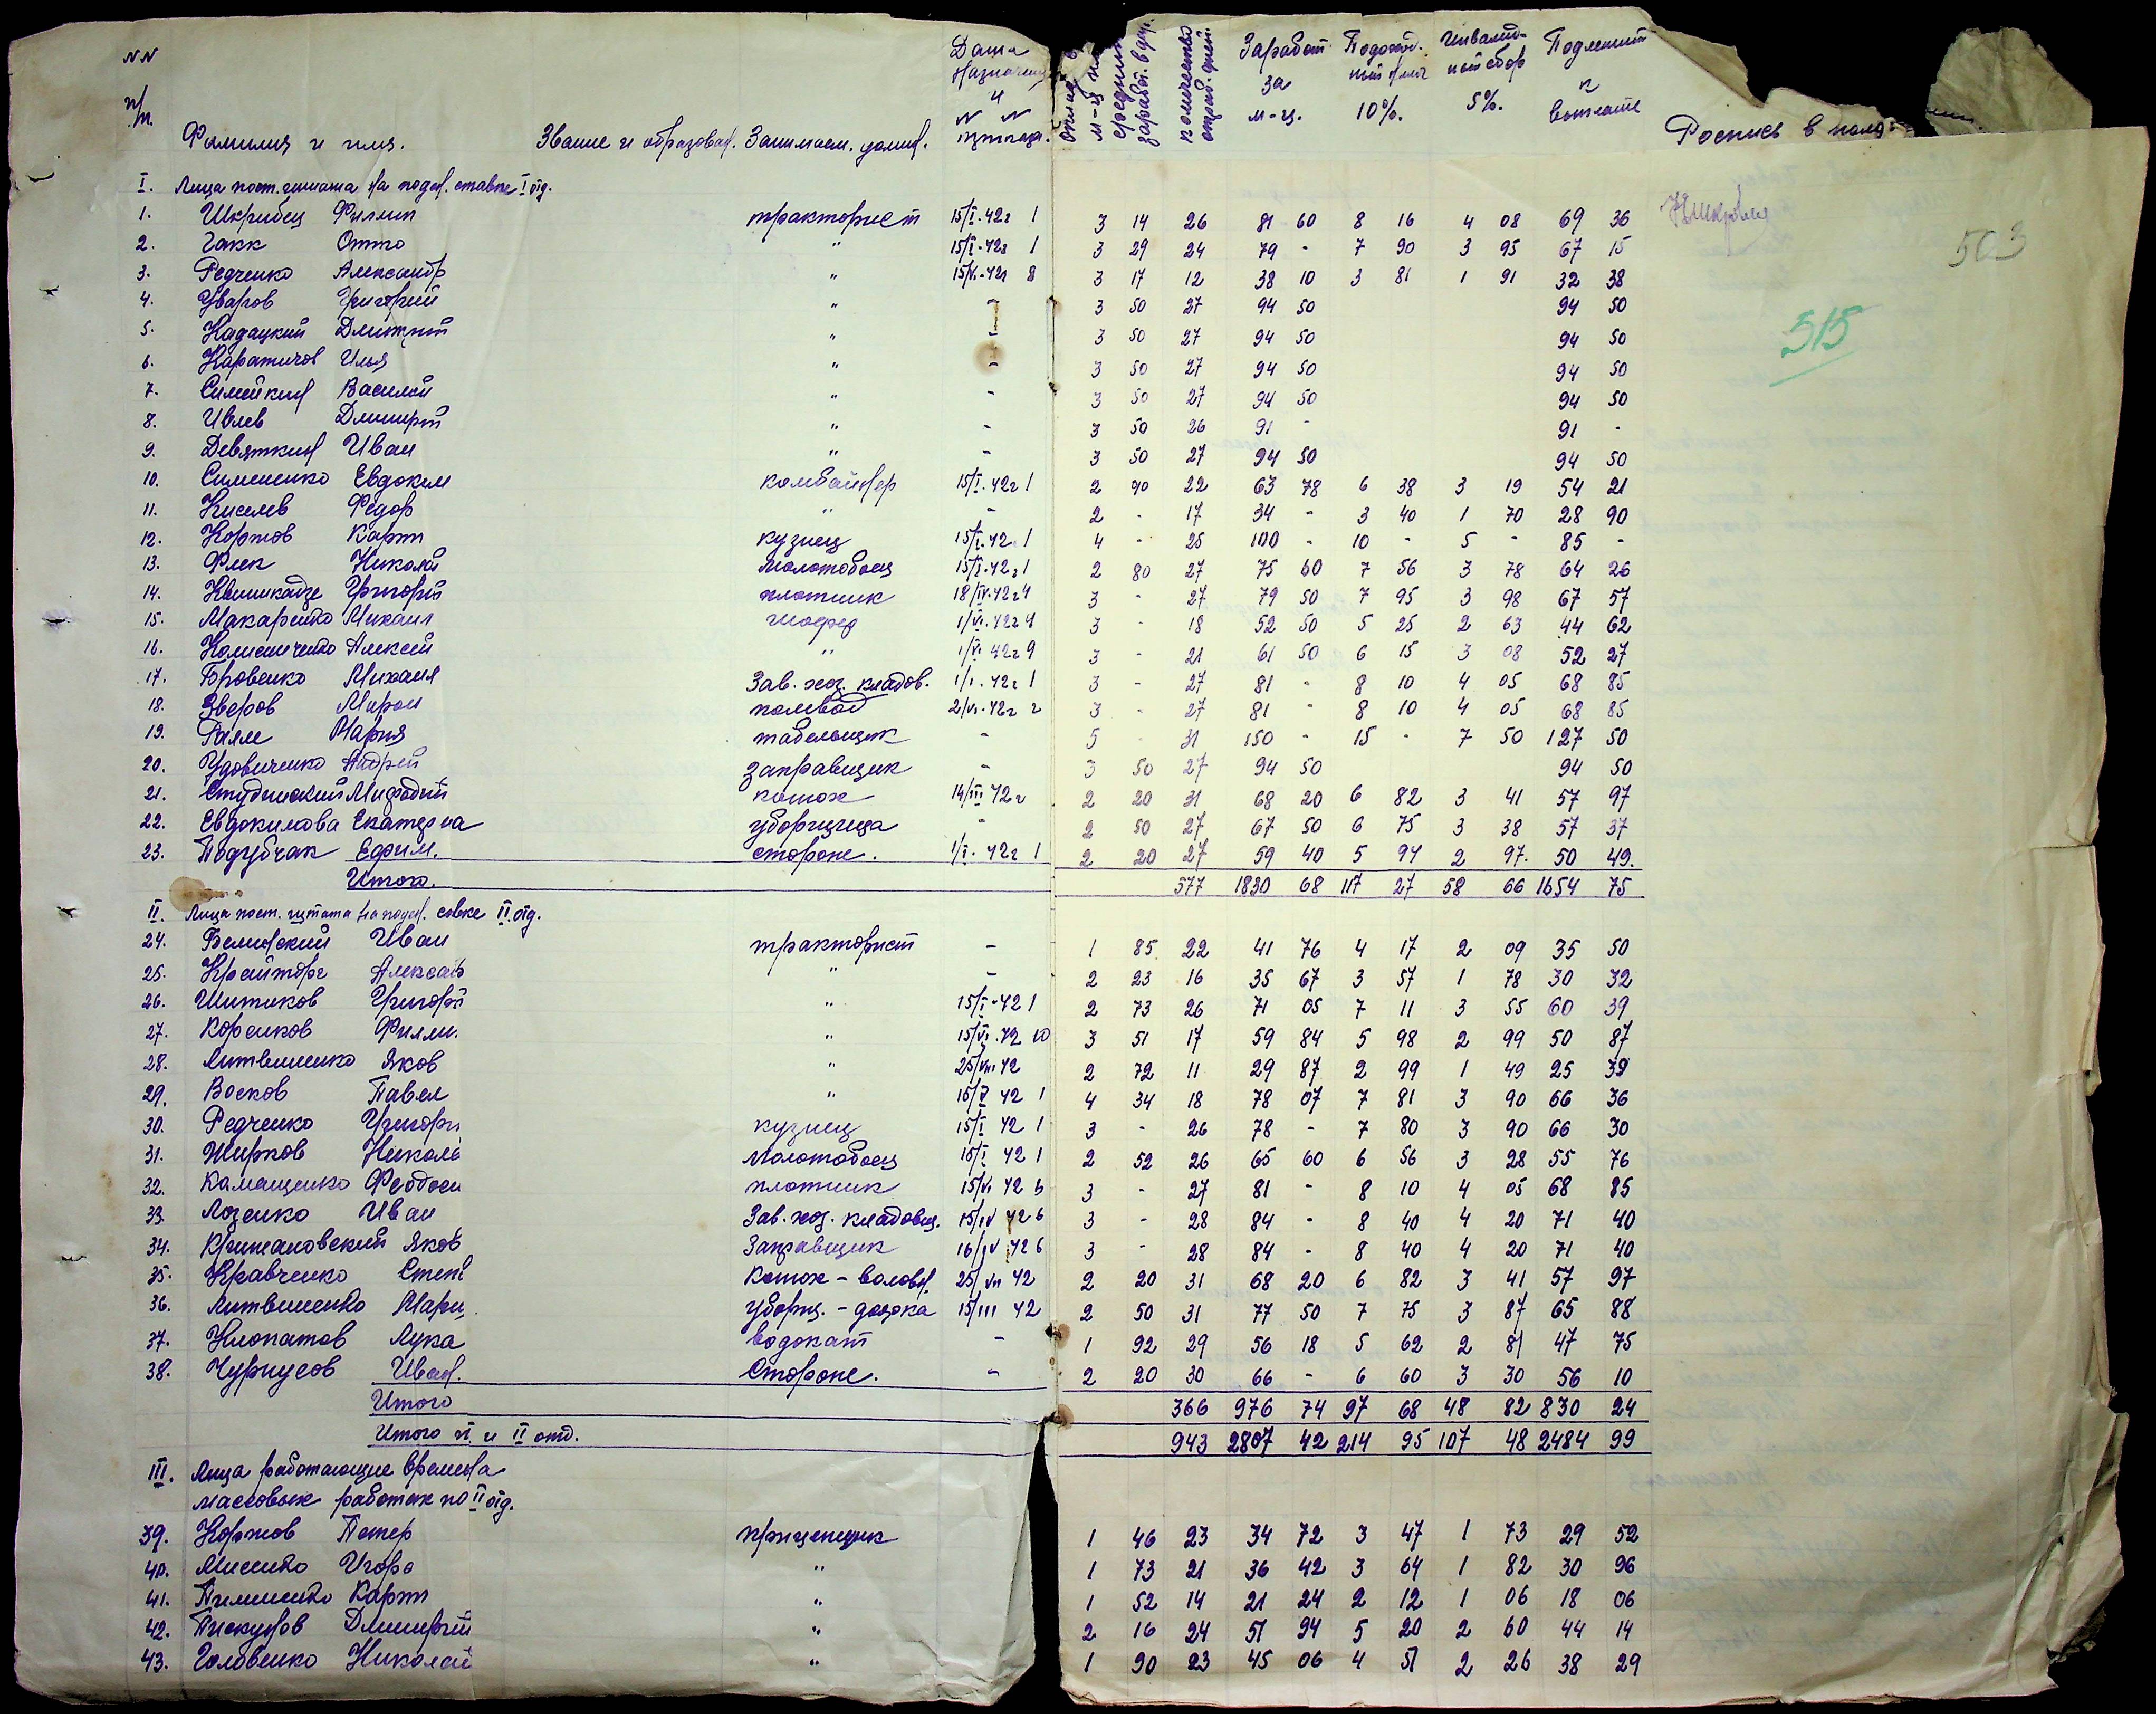 NN п/п. Фамилия и имя. Звание и образован. Занимаем. должн. Дата назначен. и NN приказа. Оклад в м-ц средний заработ. в день. количество отраб. дней. Заработ за м-ц. Подоход. ный налог 10%. Инвалид- ный сбор 5%. Подлежит к выплате Роспись в
I. Лица пост. штата на подён. ставке I отд.
1. Шкрибец Филип тракторист 15/I-42г 1 3 14 26 81 60 8 16 4 08 69 36
503
2. Гакк Отто " 15/I-42г 1 3 29 24 79 - 7 90 3 95 67 15
3. Редченко Александр " 15/VI-42г 8 3 17 12 38 10 3 81 1 91 32 38
4. Уваров Григорий " - 3 50 27 94 50 94 50
515
5. Кадацкий Дмитрий " - 3 50 27 94 50 94 50
6. Каратичов Илья " - 3 50 27 94 50 94 50
7. Симейкин Василий " - 3 50 27 94 50 94 50
8. Ивлев Дмитрий " - 3 50 26 91 - 91 -
9. Девяткин Иван " - 3 50 27 94 50 94 50
10. Симененко Евдоким комбайнер 15/I-42г 1 2 90 22 63 78 6 38 3 19 54 21
11. Киселев Федор " - 2 - 17 34 - 3 40 1 70 28 90
12. Коржов Карп кузнец 15/I-42 1 4 - 25 100 - 10 - 5 - 85 -
13. Фик Николай молотобоец 15/I-42г 1 2 80 27 75 60 7 56 3 78 64 26
14. Григорий плотник 18/IV-42г 4 3 - 27 79 50 7 95 3 98 67 57
15. Макаренко Михаил шофер 1/VI-42г 4 3 - 18 52 50 5 25 2 63 44 62
16. Алексей " 1/VI 42г 9 3 - 21 61 50 6 15 3 08 52 27
17. Боровенко Михаил Зав. хоз. кладов. 1/I-42г 1 3 - 27 81 - 8 10 4 05 68 85
18. Зверов Мирон полевод 2/VI-42г 2 3 - 27 81 - 8 10 4 05 68 85
19. Мария табельщик - 5 - 31 150 - 15 - 7 50 127 50
20. Удовиченко Андрей заправщик - 3 50 27 94 50 94 50
21. Студинский Мифодий конюх 14/III 42г 2 20 31 68 20 6 82 3 41 57 97
22. Евдокимова Екатерина уборщица - 2 50 27 67 50 6 75 3 38 57 37
23. Поддубчак Ефим. сторож. 1/I-42г 1 2 20 27 59 40 5 94 2 97. 50 49.
Итого. 577 1830 68 117 27 58 66 1654 75
II. Лица пост. штата на подён. ставке II отд.
24. Белинский Иван тракторист - 1 85 22 41 76 4 17 2 09 35 50
25. " - 2 23 16 35 67 3 57 1 78 30 32
26. Шитиков Григори " 15/I-42 1 2 73 26 71 05 7 11 3 55 60 39
27. Корсиков Филли. " 15/VI-42 10 3 51 17 59 84 5 98 2 99 50 87
28. Литвиненко Яков " 25/VIII 42 2 72 11 29 87 2 99 1 49 25 39
29. Восков Павел " 15/V 42 1 4 34 18 78 07 7 81 3 90 66 36
30. Редченко Григори кузнец 15/I 42 1 3 - 26 78 - 7 80 3 90 66 30
31. Ширков Никола молотобоец 15/I 42 1 2 52 26 65 60 6 56 3 28 55 76
32. Камащенко Феодоси плотник 15/VI 42 6 3 - 27 81 - 8 10 4 05 68 85
33. Лозенко Иван Зав. хоз. кладовщ. 15/IV 42 6 3 - 28 84 - 8 40 4 20 71 40
34. Яков Заправщик 16/IV 42 6 3 - 28 84 - 8 40 4 20 71 40
35. Кравченко Степ Конюх - 25/VII 42 2 20 31 68 20 6 82 3 41 57 97
36. Литвиненко Мари Уборщ. - доярка 15/III 42 2 50 31 77 50 7 75 3 87 65 88
37. Клопатов Лука водокат - 1 92 29 56 18 5 62 2 81 47 75
38. Чурпусов Иван. Сторож. - 2 20 30 66 - 6 60 3 30 56 10
Итого 366 976 74 97 68 48 82 830 24
Итого I. и II отд. 943 2807 42 214 95 107 48 2484 99
III. Лица работающие времен. на
массовых работах по II отд.
39. Коржов Петер прицепщик 1 46 23 34 72 3 47 1 73 29 52
40. Мисенко Игорь " 1 73 21 36 42 3 64 1 82 30 96
41. Пименко Карп " 1 52 14 21 24 2 12 1 06 18 06
42. Пискунов Дмитрий " 2 16 24 51 94 5 20 2 60 44 14
43. Головенко Николай " 1 90 23 45 06 4 51 2 26 38 29